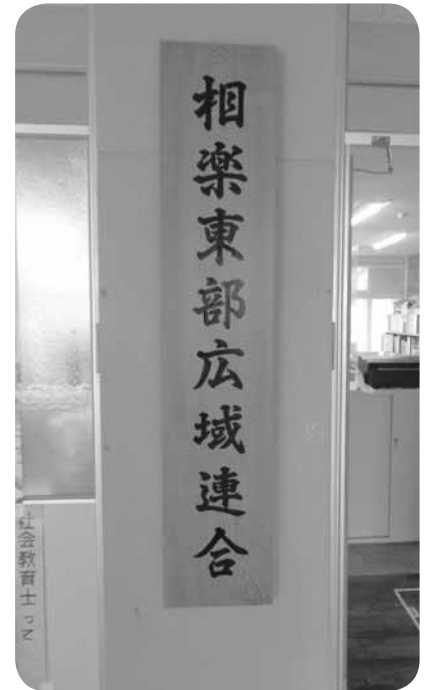 相楽東部広域連合
社会教育士って